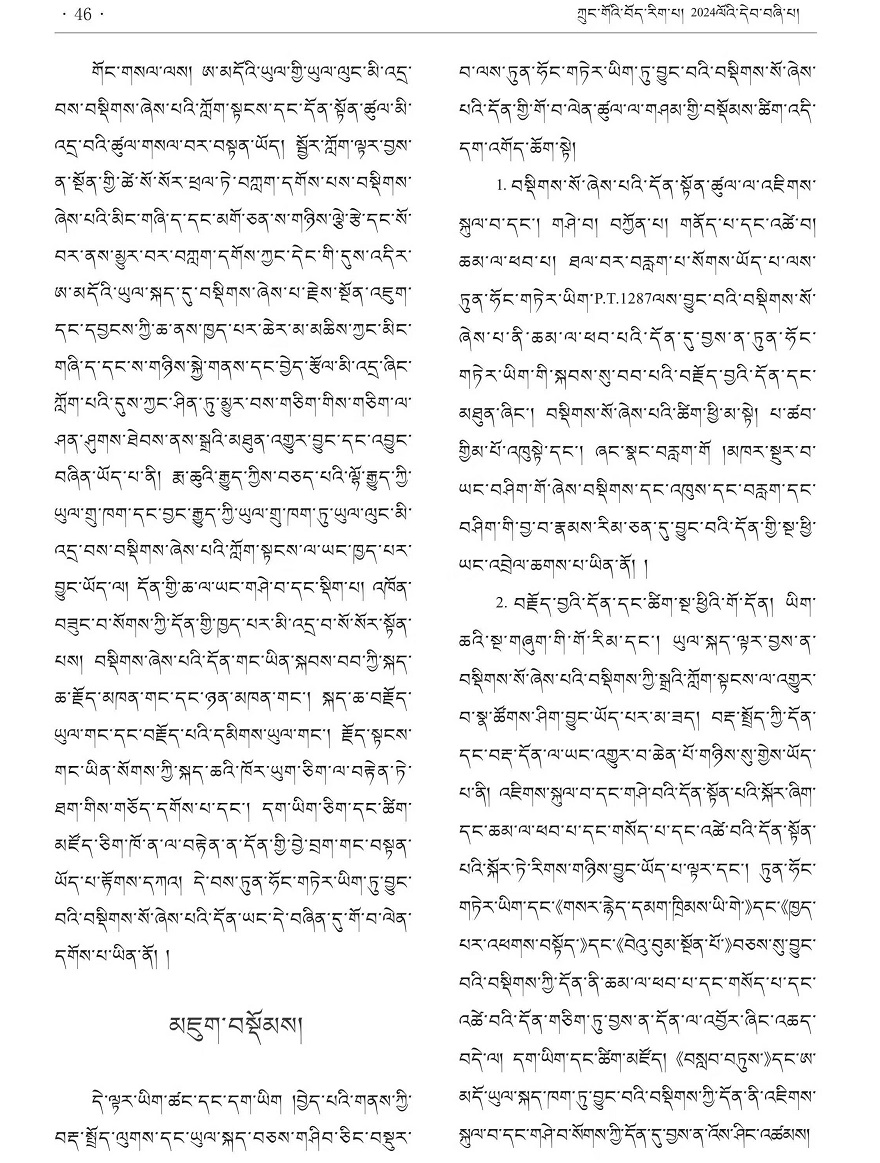 · 46 ·
ཀྲུང་གོའི་བོད་རིག་པ། 2024ལོའི་དེབ་བཞི་པ།
གོང་གསལ་ལས། ཨ་མདོའི་ཡུལ་གྱི་ཡུལ་ལུང་མི་འདྲ་
བས་བསྡིགས་ཞེས་པའི་ཀློག་སྟངས་དང་དོན་སྟོན་ཚུལ་མི་
འདྲ་བའི་ཚུལ་གསལ་བར་བསྟན་ཡོད། སྦྱོར་ཀློག་ལྟར་བྱས་
ན་སྔོན་གྱི་ཚེ་སོ་སོར་ཕྲལ་ཏེ་བཀླག་དགོས་པས་བསྡིགས་
ཞེས་པའི་མིང་གཞི་ད་དང་མགོ་ཅན་ས་གཉིས་ལྕེ་རྩེ་དང་སོ་
བར་ནས་མྱུར་བར་བཀླག་དགོས་ཀྱང་དེང་གི་དུས་འདིར་
ཨ་མདོའི་ཡུལ་སྐད་དུ་བསྡིགས་ཞེས་པ་རྗེས་སྔོན་འཇུག་
དང་དབྱངས་ཀྱི་ཆ་ནས་ཁྱད་པར་ཆེར་མ་མཆིས་ཀྱང་མིང་
གཞི་ད་དང་ས་གཉིས་སྐྱེ་གནས་དང་བྱེད་རྩོལ་མི་འདྲ་ཞིང་
ཀློག་པའི་དུས་ཀྱང་ཤིན་ཏུ་མྱུར་བས་གཅིག་གིས་གཅིག་ལ་
ཤན་ཤུགས་ཐེབས་ནས་སྒྲའི་མཐུན་འགྱུར་བྱུང་དང་འབྱུང་
བཞིན་ཡོད་པ་ནི། རྨ་ཆུའི་རྒྱུད་ཀྱིས་བཅད་པའི་ལྷོ་རྒྱུད་ཀྱི་
ཡུལ་གྲུ་ཁག་དང་བྱང་རྒྱུད་ཀྱི་ཡུལ་གྲུ་ཁག་ཏུ་ཡུལ་ལུང་མི་
འདྲ་བས་བསྡིགས་ཞེས་པའི་ཀློག་སྟངས་ལ་ཡང་ཁྱད་པར་
བྱུང་ཡོད་ལ། དོན་གྱི་ཆ་ལ་ཡང་གཤེ་བ་དང་སྡིག་པ། འཁོན་
བཟུང་བ་སོགས་ཀྱི་དོན་གྱི་ཁྱད་པར་མི་འདྲ་བ་སོ་སོར་སྟོན་
པས། བསྡིགས་ཞེས་པའི་དོན་གང་ཡིན་སྐབས་བབ་ཀྱི་སྐད་
ཆ་རྗོད་མཁན་གང་དང་ཉན་མཁན་གང་། སྐད་ཆ་བརྗོད་
ཡུལ་གང་དང་བརྗོད་པའི་དམིགས་ཡུལ་གང་། རྗོད་སྟངས་
གང་ཡིན་སོགས་ཀྱི་སྐད་ཆའི་ཁོར་ཡུག་ཅིག་ལ་བརྟེན་ཏེ་
ཐག་གིས་གཅོད་དགོས་པ་དང་། དག་ཡིག་ཅིག་དང་ཚིག་
མཛོད་ཅིག་ཁོ་ན་ལ་བརྟེན་ན་དོན་གྱི་བྱེ་བྲག་གང་བསྟན་
ཡོད་པ་རྟོགས་དཀའ། དེ་བས་ཏུན་ཧོང་གཏེར་ཡིག་ཏུ་བྱུང་
བའི་བསྡིགས་སོ་ཞེས་པའི་དོན་ཡང་དེ་བཞིན་དུ་གོ་བ་ལེན་
དགོས་པ་ཡིན་ནོ། །
མཇུག་བསྡོམས།
དེ་ལྟར་ཡིག་ཚང་དང་དག་ཡིག །བྱེད་པའི་གནས་ཀྱི་
བརྡ་སྤྲོད་ལུགས་དང་ཡུལ་སྐད་བཅས་གཤིབ་ཅིང་བསྡུར་
བ་ལས་ཏུན་ཧོང་གཏེར་ཡིག་ཏུ་བྱུང་བའི་བསྡིགས་སོ་ཞེས་
པའི་དོན་གྱི་གོ་བ་ལེན་ཚུལ་ལ་གཤམ་གྱི་བསྡོམས་ཚིག་འདི་
དག་འགོད་ཆོག་སྟེ།
1. བསྡིགས་སོ་ཞེས་པའི་དོན་སྟོན་ཚུལ་ལ་འཇིགས་
སྐུལ་བ་དང་། གཤེ་བ། བཀྱོན་པ། གནོད་པ་དང་འཚེ་བ།
ཆམ་ལ་ཕབ་པ། ཐལ་བར་བརླག་པ་སོགས་ཡོད་པ་ལས་
ཏུན་ཧོང་གཏེར་ཡིག་P.T.1287ལས་བྱུང་བའི་བསྡིགས་སོ་
ཞེས་པ་ནི་ཆམ་ལ་ཕབ་པའི་དོན་དུ་བྱས་ན་ཏུན་ཧོང་
གཏེར་ཡིག་གི་སྐབས་སུ་བབ་པའི་བརྗོད་བྱའི་དོན་དང་
མཐུན་ཞིང་། བསྡིགས་སོ་ཞེས་པའི་ཚིག་ཕྱི་མ་སྟེ། པ་ཚབ་
གྱིམ་པོ་འཁུསྟེ་དང་། ཞང་སྣང་བརླག་གོ །མཁར་སྡུར་བ་
ཡང་བཤིག་གོ་ཞེས་བསྡིགས་དང་འཁུས་དང་བརླག་དང་
བཤིག་གི་བྱ་བ་རྣམས་རིམ་ཅན་དུ་བྱུང་བའི་དོན་གྱི་སྔ་ཕྱི་
ཡང་འབྲེལ་ཆགས་པ་ཡིན་ནོ། །
2. བརྗོད་བྱའི་དོན་དང་ཚིག་སྔ་ཕྱིའི་གོ་དོན། ཡིག་
ཆའི་སྔ་གཞུག་གི་གོ་རིམ་དང་། ཡུལ་སྐད་ལྟར་བྱས་ན་
བསྡིགས་སོ་ཞེས་པའི་བསྡིགས་ཀྱི་སྒྲའི་ཀློག་སྟངས་ལ་འགྱུར་
བ་སྣ་ཚོགས་ཤིག་བྱུང་ཡོད་པར་མ་ཟད། བརྡ་སྤྲོད་ཀྱི་དོན་
དང་བརྡ་དོན་ལ་ཡང་འགྱུར་བ་ཆེན་པོ་གཉིས་སུ་གྱེས་ཡོད་
པ་ནི། འཇིགས་སྐུལ་བ་དང་གཤེ་བའི་དོན་སྟོན་པའི་སྐོར་ཞིག་
དང་ཆམ་ལ་ཕབ་པ་དང་གསོད་པ་དང་འཚེ་བའི་དོན་སྟོན་
པའི་སྐོར་ཏེ་རིགས་གཉིས་བྱུང་ཡོད་པ་ལྟར་དང་། ཏུན་ཧོང་
གཏེར་ཡིག་དང་《གསར་རྙེད་དམག་ཁྲིམས་ཡི་གེ་》དང་《ཁྱད་
པར་འཕགས་བསྟོད་》དང་《བེའུ་བུམ་སྔོན་པོ་》བཅས་སུ་བྱུང་
བའི་བསྡིགས་ཀྱི་དོན་ནི་ཆམ་ལ་ཕབ་པ་དང་གསོད་པ་དང་
འཚེ་བའི་དོན་གཅིག་ཏུ་བྱས་ན་དོན་ལ་འབྱོར་ཞིང་འཆད་
བདེ་ལ། དག་ཡིག་དང་ཚིག་མཛོད། 《བསླབ་བཏུས་》དང་ཨ་
མདོ་ཡུལ་སྐད་ཁག་ཏུ་བྱུང་བའི་བསྡིགས་ཀྱི་དོན་ནི་འཇིགས་
སྐུལ་བ་དང་གཤེ་བ་སོགས་ཀྱི་དོན་དུ་བྱས་ན་འོས་ཤིང་འཚམས།